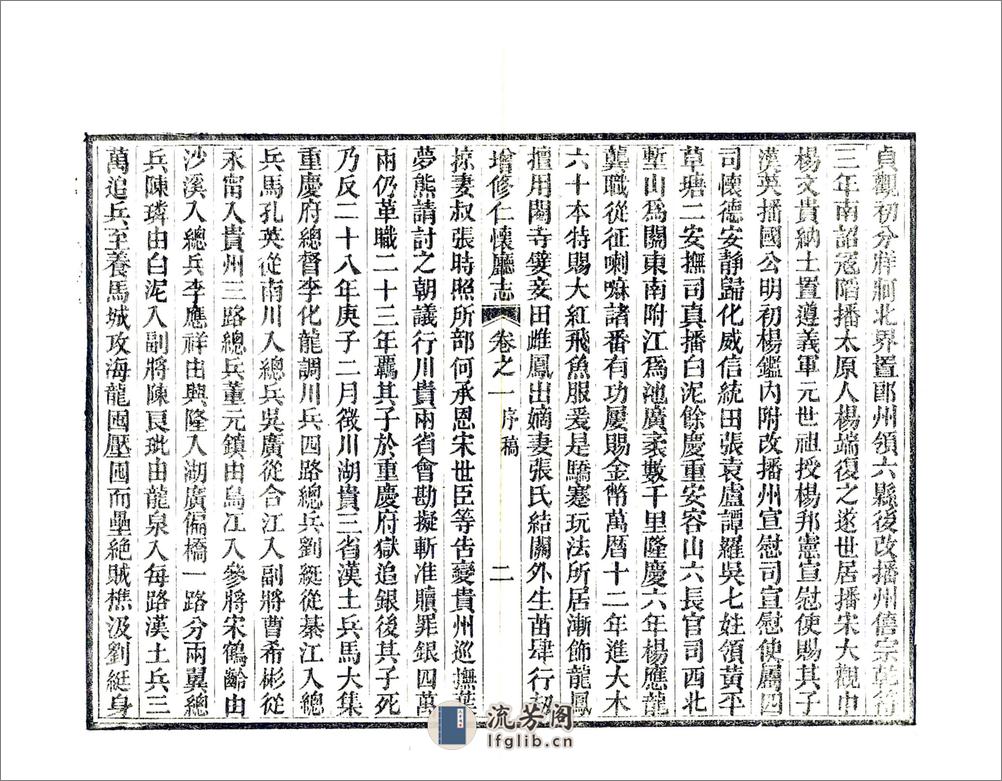 貞觀初分牂牁北界置郎州領六縣後改播州僖宗乾符
三年南詔冦陷播太原人楊端復之遂世居播宋大觀中
楊文貴納土置遵義軍元世祖授楊邦憲宣慰使賜其子
漢英播國公明初楊鑑內附改播州宣慰司宣慰使屬四
司懷德安靜歸化威信統田張袁盧譚羅吳七姓領黃平
草塘二安撫司真播白泥餘慶重安容山六長官司西北
塹山爲關東南附江爲池廣袤數千里隆慶六年楊應龍
襲職從征喇嘛諸番有功屢賜金幣萬曆十二年進大木
六十本特賜大紅飛魚服爰是驕蹇玩法所居漸飾龍鳳
擅用閹寺嬖妾田雌鳳出嫡妻張氏結關外生苗肆行刼
增修仁懷廳志 卷之一 序稿 二
掠妻叔張時照所部何承恩宋世臣等告變貴州巡撫葉
夢熊請討之朝議行川貴兩省會勘擬斬准贖罪銀四萬
兩仍革職二十三年羈其子於重慶府獄追銀後其子死
乃反二十八年庚子二月徵川湖貴三省漢土兵馬大集
重慶府總督李化龍調川兵四路總兵劉綎從綦江入總
兵馬孔英從南川入總兵吳廣從合江入副將曹希彬從
永甯入貴州三路總兵董元鎮由烏江入參將宋鶴齡由
沙溪入總兵李應祥由興隆入湖廣偏橋一路分兩翼總
兵陳璘由白泥入副將陳良玭由龍泉入每路漢土兵三
萬追兵至養馬城攻海龍囤壓囤而壘絕賊樵汲劉綎身
流芳閣
lfglib.cn